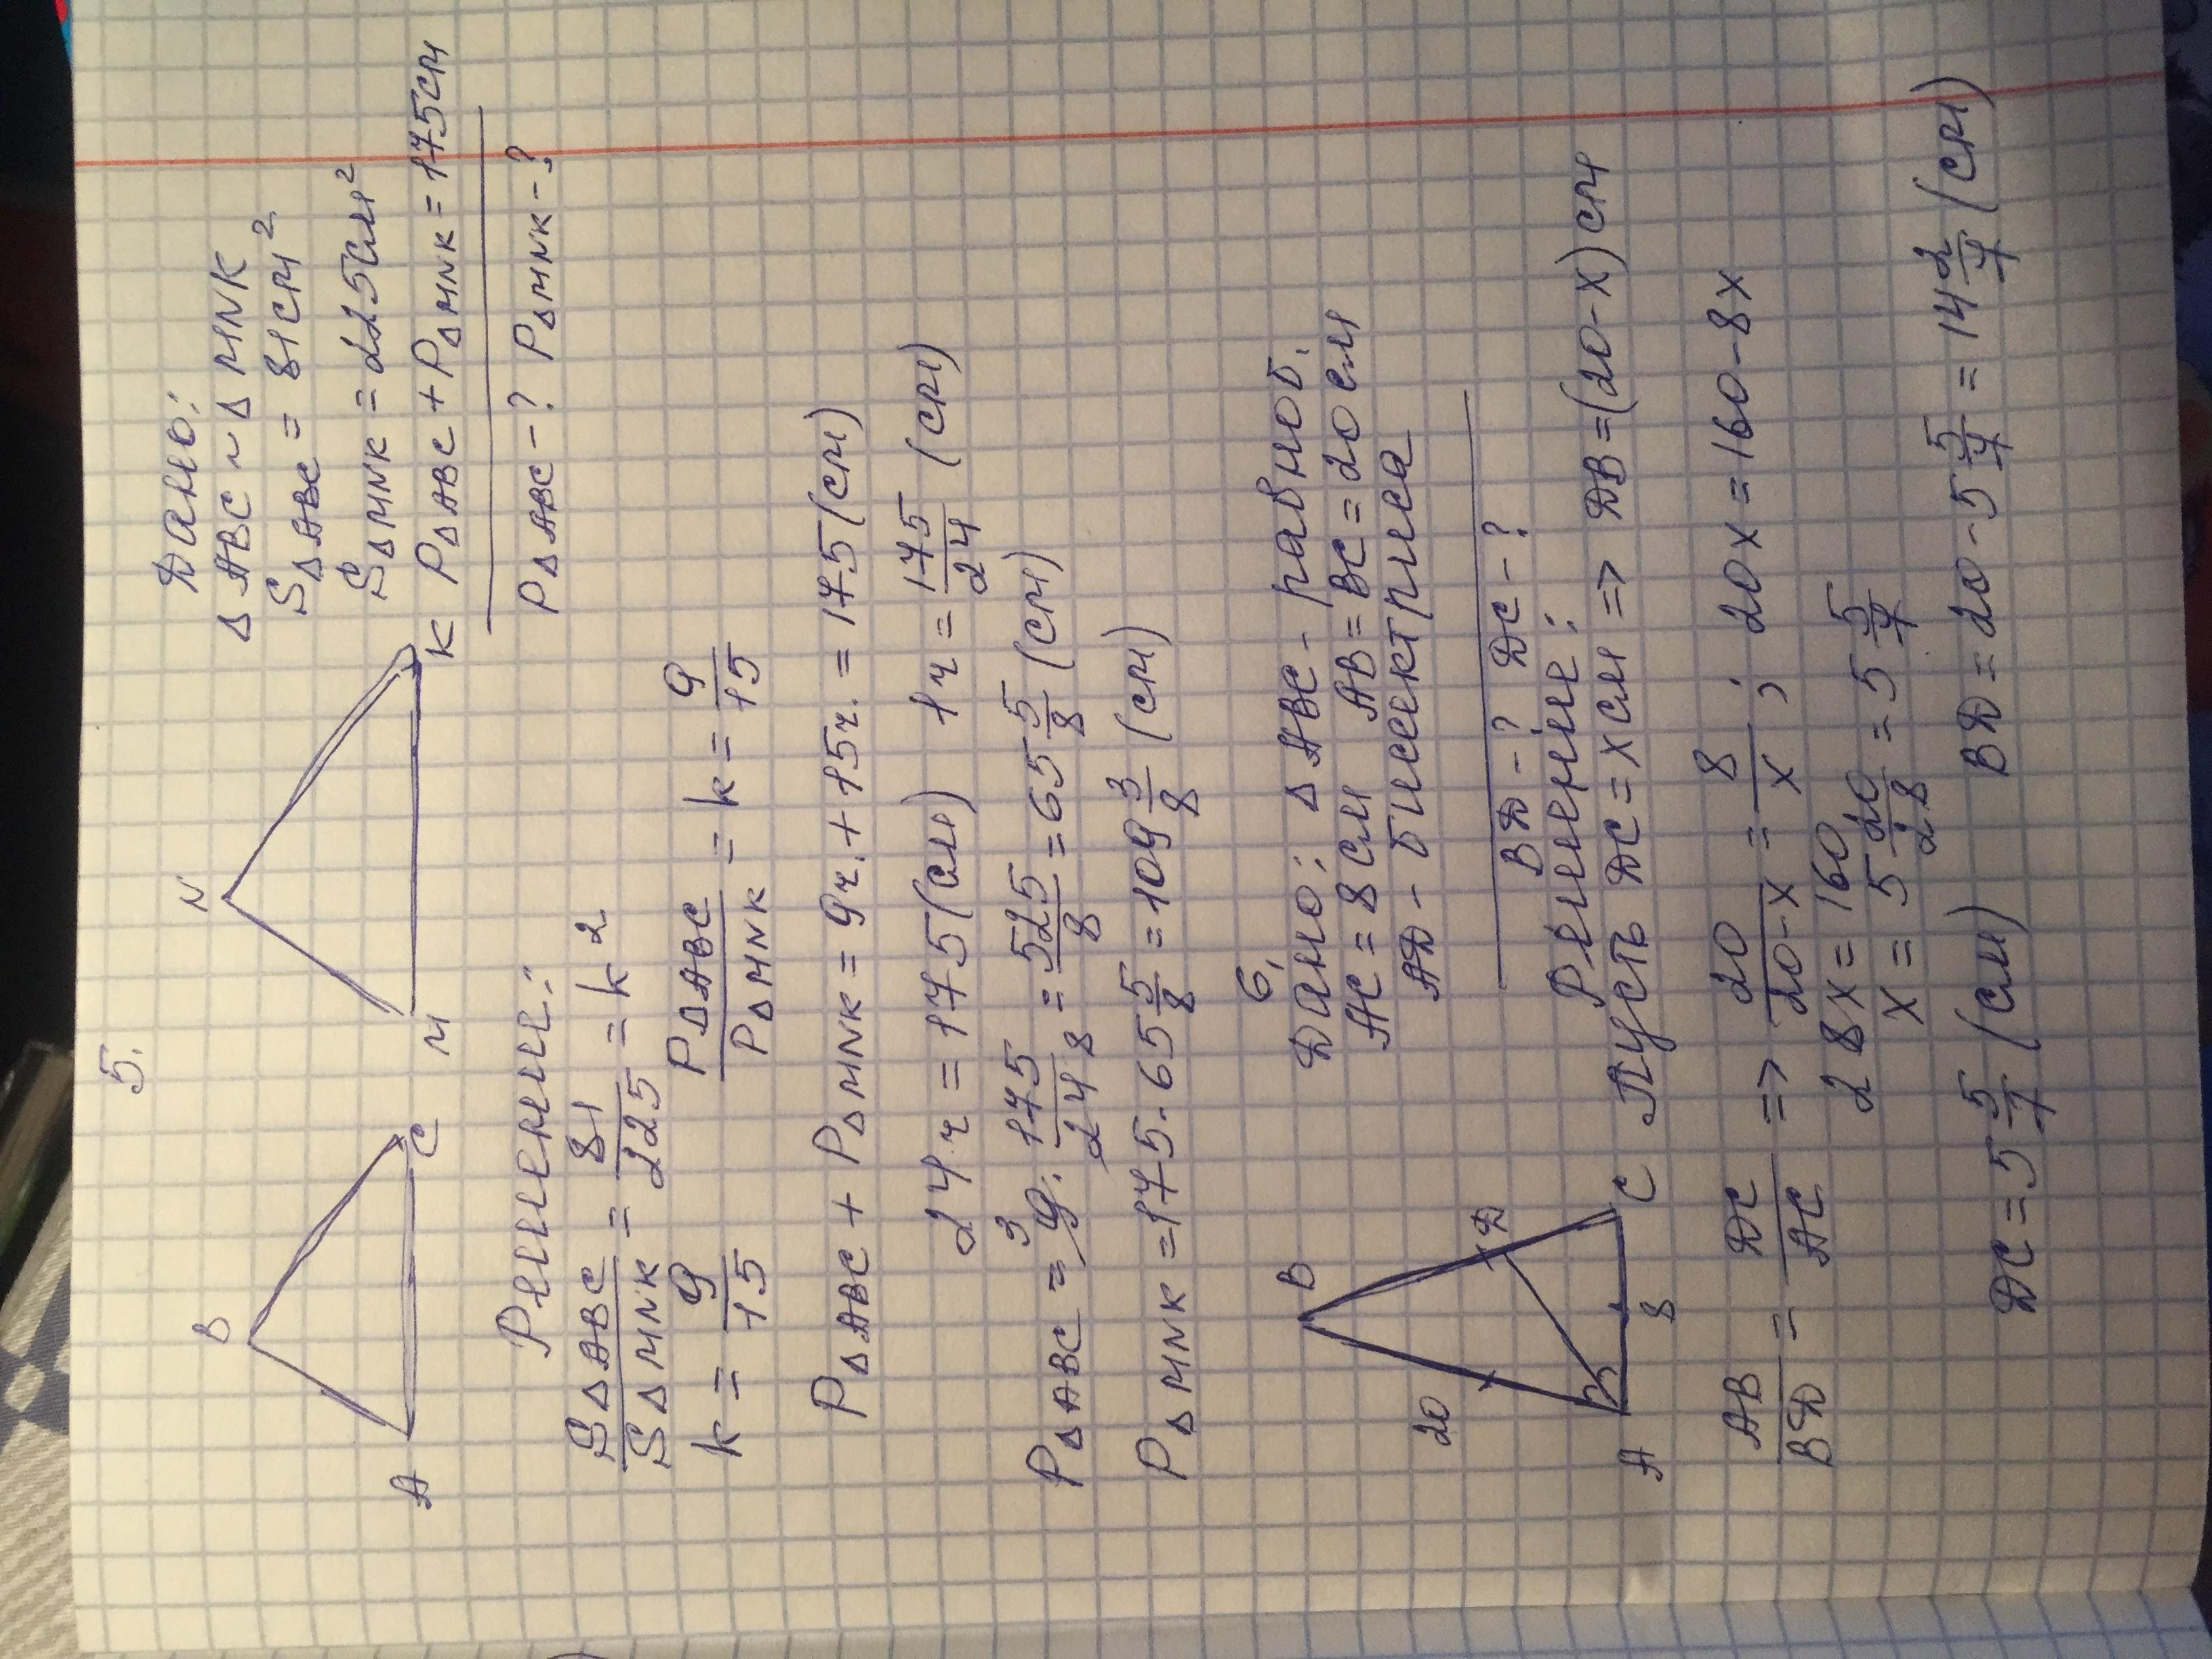 5.
B
A
C
N
M
K
Дано:
Δ ABC ~ Δ MNK
SΔ ABC = 81 см²
SΔ MNK = 225 см²
PΔ ABC + PΔ MNK = 175 см
PΔ ABC - ? PΔ MNK - ?
Решение:
SΔ ABC / SΔ MNK = 81/225 = k²
k = 9/15 PΔ ABC / PΔ MNK = k = 9/15
PΔ ABC + PΔ MNK = 9ч. + 15ч. = 175 (см)
24ч = 175 (см) 1ч = 175/24 (см)
PΔ ABC = 9³ · 175/24 8 = 525/8 = 65 5/8 (см)
PΔ MNK = 175 - 65 5/8 = 109 3/8 (см)
6.
Дано: Δ ABC - равноб.
AC = 8 см AB = BC = 20 см
AД - биссектриса
BД - ? ДC - ?
B
20
Д
A
8
C
Решение:
Пусть ДC = x см => ДB = (20 - x) см
AB/BД = ДC/AC => 20/20-x = 8/x ; 20x = 160 - 8x
28x = 160
x = 5 20/28 = 5 5/7
ДC = 5 5/7 (см) BД = 20 - 5 5/7 = 14 2/7 (см)